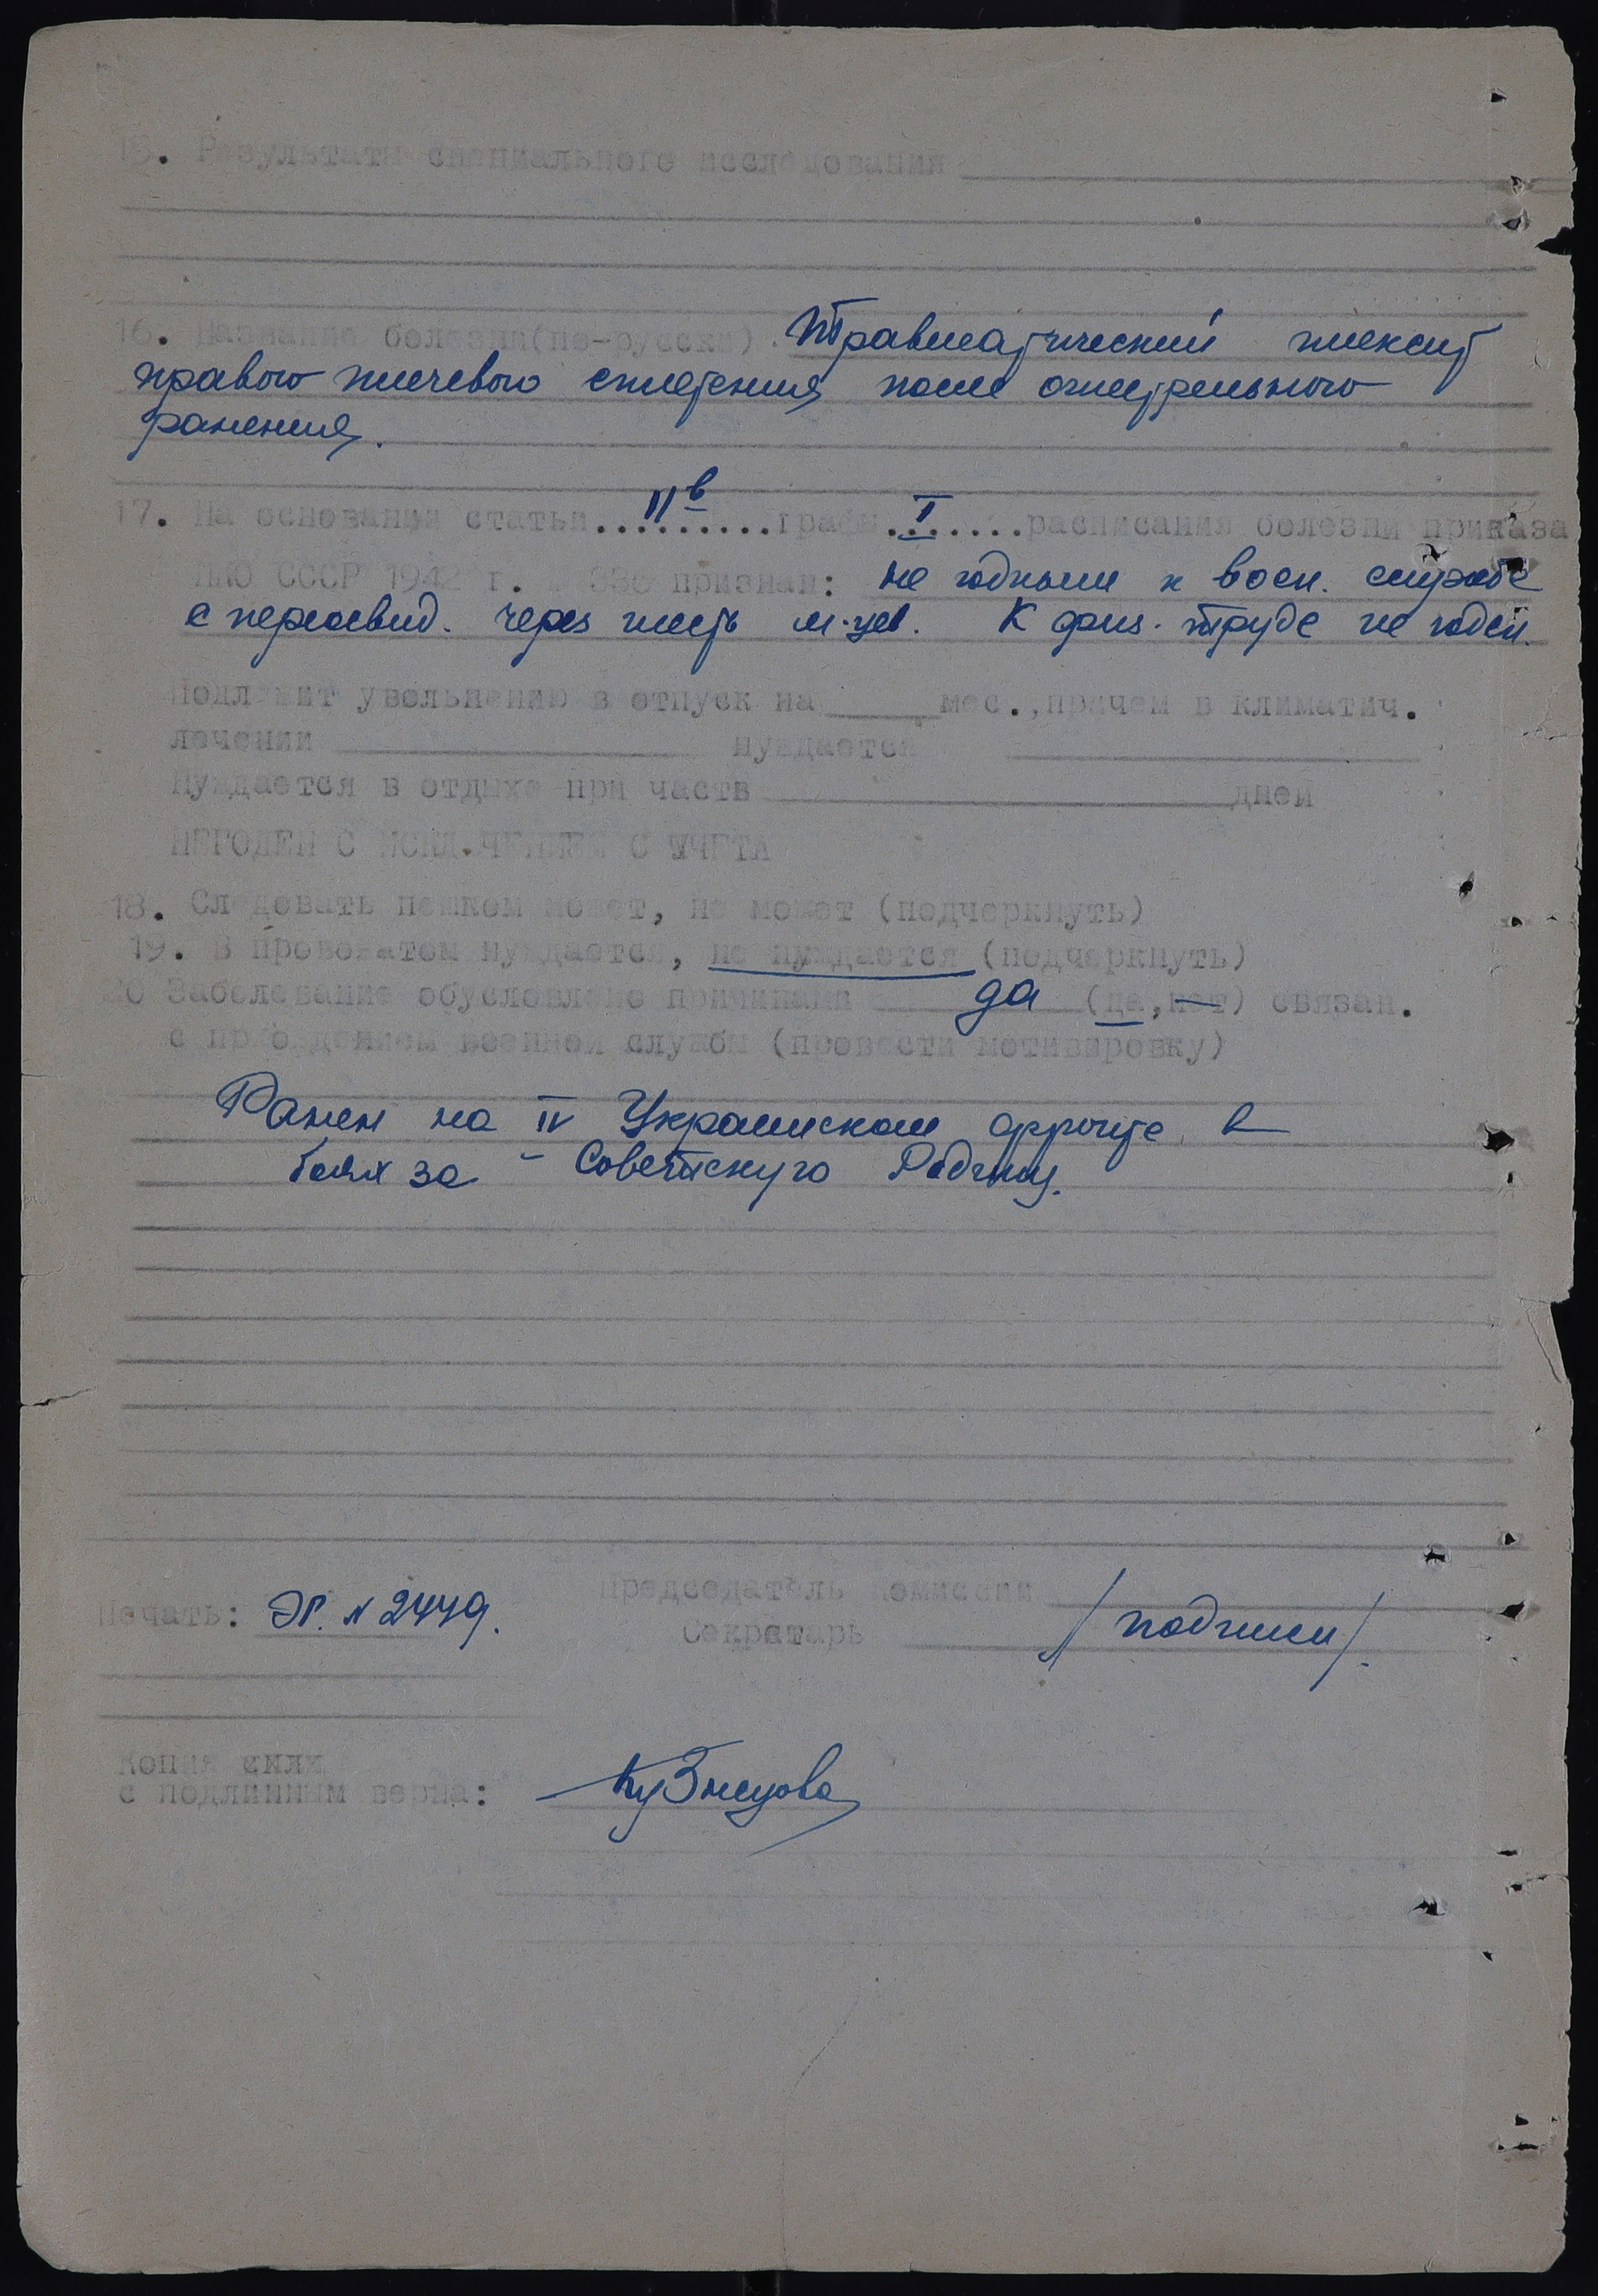 15. Результаты специального исследования
16. Название болезни(по-русски). Травматический плексит
правого плечевого сплетения после огнестрельного
ранения.
17. На основании статьи.. 11в ..графы. I ..расписания болезни приказа
НКО СССР 1942 г. 336 признан: не годным к воен. службе
с переосвид. через шесть м-цев. К физ. труде не годен.
Подлежит увольнению в отпуск на мес.,причем в климатич.
лечении нуждается
Нуждается в отдыхе при части дней
НЕГОДЕН С ИСКЛ.ЧЕНИЕМ С УЧЕТА
18. Следовать пешком может, не может (подчеркнуть)
19. В провожатом нуждается, не нуждается (подчеркнуть)
20 Заболевание обусловлено причинами да (да,нет) связан.
с прохождением военной службы (провести мотивировку)
Ранен на IV Украинском фронте в
боях за Советскую Родину.
Председатель Комиссии
Печать: ЭГ. N 2449.
Секретарь /подписи/.
Копия
с подлинным верна: Кузнецова